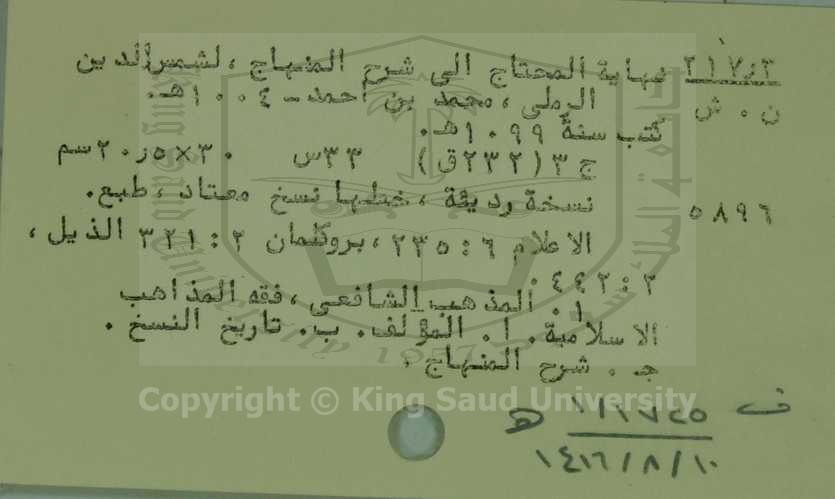 ٢١٧٫٣ نهاية المحتاج الى شرح المنهاج ، لشمس الدين
ن . ش الرملي ، محمد بن أحمد - ١٠٠٤هـ.
كتب سنة ١٠٩٩هـ.
ج ٣ (٢٣٢ق) ٣٣س ٣٠×٢٠٫٥سم
٥٨٩٦ نسخة رديئة ، خطها نسخ معتاد ، طبع.
الاعلام ٦ : ٢٣٥ ، بروكلمان ٢ : ٣٢١ الذيل ،
٢ : ٤٤٢ .
١. المذهب الشافعي ، فقه المذاهب
الاسلامية. أ. المؤلف. ب. تاريخ النسخ .
جـ . شرح المنهاج .
Copyright © King Saud University
ف
١٤١٦/٨/١٠